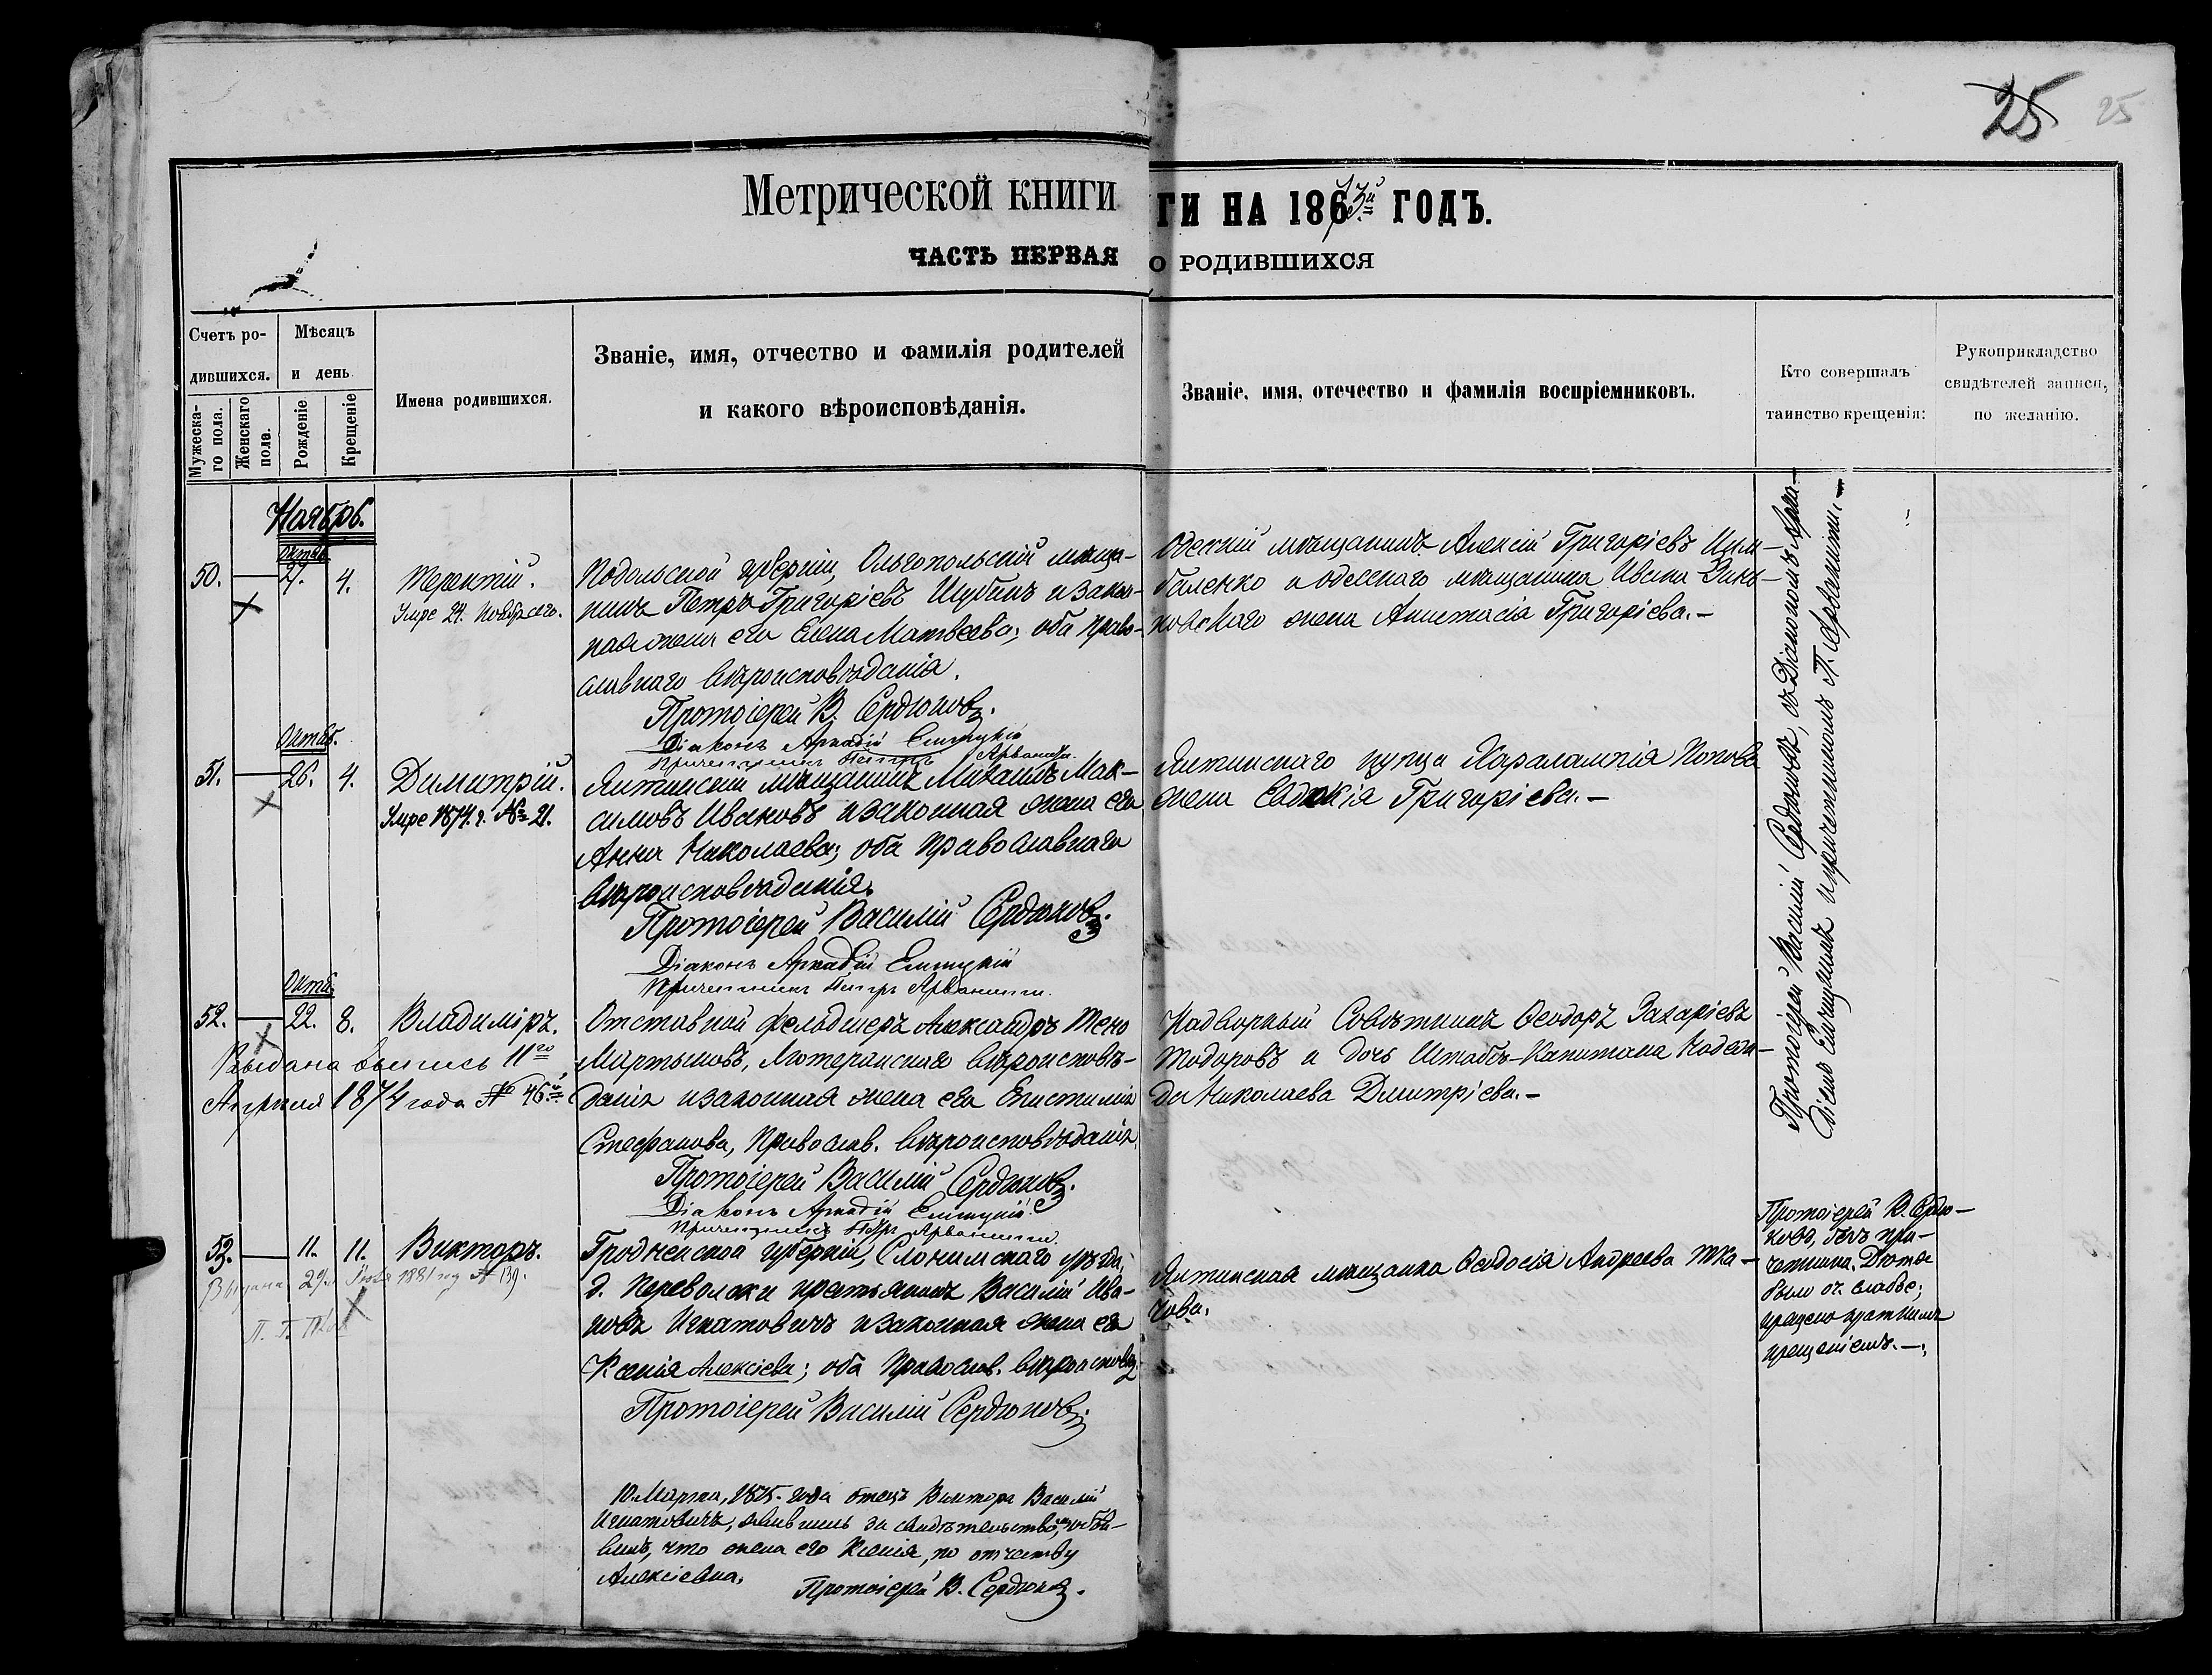 25 25
Метрической книги
ГИ НА 1873й ГОДЪ.
ЧАСТЬ ПЕРВАЯ
О РОДИВШИХСЯ
Счетъ ро-
дившихся.
Мѣсяцъ
и день
Мужеска-
го пола.
Женскаго
пола.
Рожденіе
Крещеніе
Имена родившихся.
Званіе, имя, отчество и фамилія родителей
и какого вѣроисповѣданія.
Званіе, имя, отечество и фамилія воспріемниковъ.
Кто совершалъ
таинство крещенія:
Рукоприкладство
свидѣтелей записи,
по желанію.
Ноябрь.
Октяб.
50. 27. 4. Терентій.
Умре 24. Ноября сего.
Подольской губерніи, Ольгопольскій мѣща-
нинъ Петръ Григорьевъ Шубинъ и закон-
ная жена его Елена Матвеева; оба право-
славнаго вѣроисповѣданія.
Протоіерей В. Сердюковъ.
Діаконъ Аркадій
Причетникъ Петръ Арванити.
Одесскій мѣщанинъ Алексій Григоріевъ Цим-
баленко и одесскаго мѣщанина Ивана Зинь-
ковскаго жена Анастасія Григоріева.-
Октяб.
51. 26. 4. Димитрій.
Умре 1874. г. № 21.
Ялтинскій мѣщанинъ Михаилъ Мак-
симовъ Ивановъ и законная жена его
Анна Николаева; оба православнаго
вѣроисповѣданія.
Протоіерей Василій Сердюковъ.
Діаконъ Аркадій
Причетникъ Петръ Арванити.
Ялтинскаго купца Харалампія Попова
жена Евдокія Григоріева.-
Октяб.
52. 22. 8. Владиміръ.
Выдана выпись 11го
Апрѣля 1874 года № 46й.
Отставной фельдшеръ Александръ
Мартыновъ, Лютеранскаго вѣроисповѣ-
данія и законная жена его Епистимія
Стефанова, Православ. вѣроисповѣданія.
Протоіерей Василій Сердюковъ.
Діаконъ Аркадій
Причетникъ Петръ Арванити.
Надворный Совѣтникъ Ѳеодоръ Захаріевъ
Тодоровъ и дочь Штабсъ-Капитана Надеж-
да Николаева Дмитріева.-
Протоіерей Василій Сердюковъ, съ Діакономъ Арка-
діемъ и причетникомъ П. Арванити.-
53. 11. 11. Викторъ.
Выдана 29 1881 год № 139.
Гродненской губерніи, Слонимскаго уѣзда,
д. Переволоки крестьянинъ Василій Ива-
новъ Игнатовичъ и законная жена его
Ксенія Алексіева; оба православ. вѣроисповѣд.
Протоіерей Василій Сердюковъ.
Ялтинская мѣщанка Ѳеодосія Андреева Тка-
чова.
Протоіерей В. Сердю-
ковъ, безъ при-
четника. Дитя
было оч. слабо;
крещено краткимъ
крещеніемъ.-
10. Марта, 1875. года отецъ Виктора Василій
Игнатовичъ, явившись за свидѣтельствомъ, объя-
вилъ, что жена его Ксенія, по отчеству
Алексіевна.
Протоіерей В. Сердюковъ.